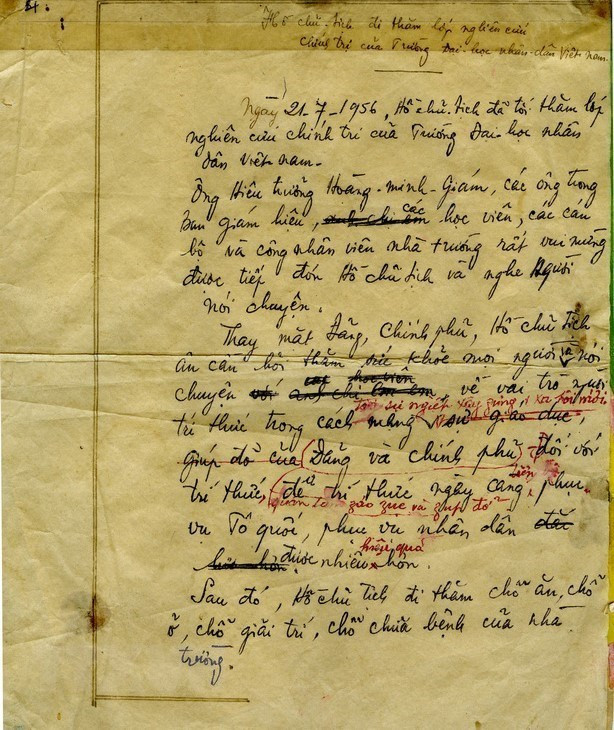 Hồ chủ-tịch đi thăm lớp nghiên cứu
chính trị của Trường Đại-học nhân-dân Việt-nam.
Ngày 21-7-1956, Hồ chủ-tịch đã tới thăm lớp
nghiên cứu chính trị của Trường Đại-học nhân
dân Việt-nam.
Ông Hiệu trưởng Hoàng-minh-Giám, các ông trong
ban giám hiệu, các học viên, các cán
bộ và công nhân viên nhà trường rất vui mừng
được tiếp đón Hồ chủ tịch và nghe Người
nói chuyện.
Thay mặt Đảng, Chính phủ, Hồ chủ tịch
ân cần hỏi thăm sức khỏe mọi người và nói
học viên
chuyện với anh chị em về vai trò người
tới sự nghiệp xây dựng xã hội mới
trí thức trong cách mạng, sự giáo dục,
giúp đỡ của Đảng và chính phủ đối với
trí thức, để trí thức ngày càng tiến phục
giáo dục và giúp đỡ
vụ Tổ quốc, phục vụ nhân dân
hiệu quả
được nhiều hơn.
Sau đó, Hồ chủ tịch đi thăm chỗ ăn, chỗ
ở, chỗ giải trí, chỗ chữa bệnh của nhà
trường.